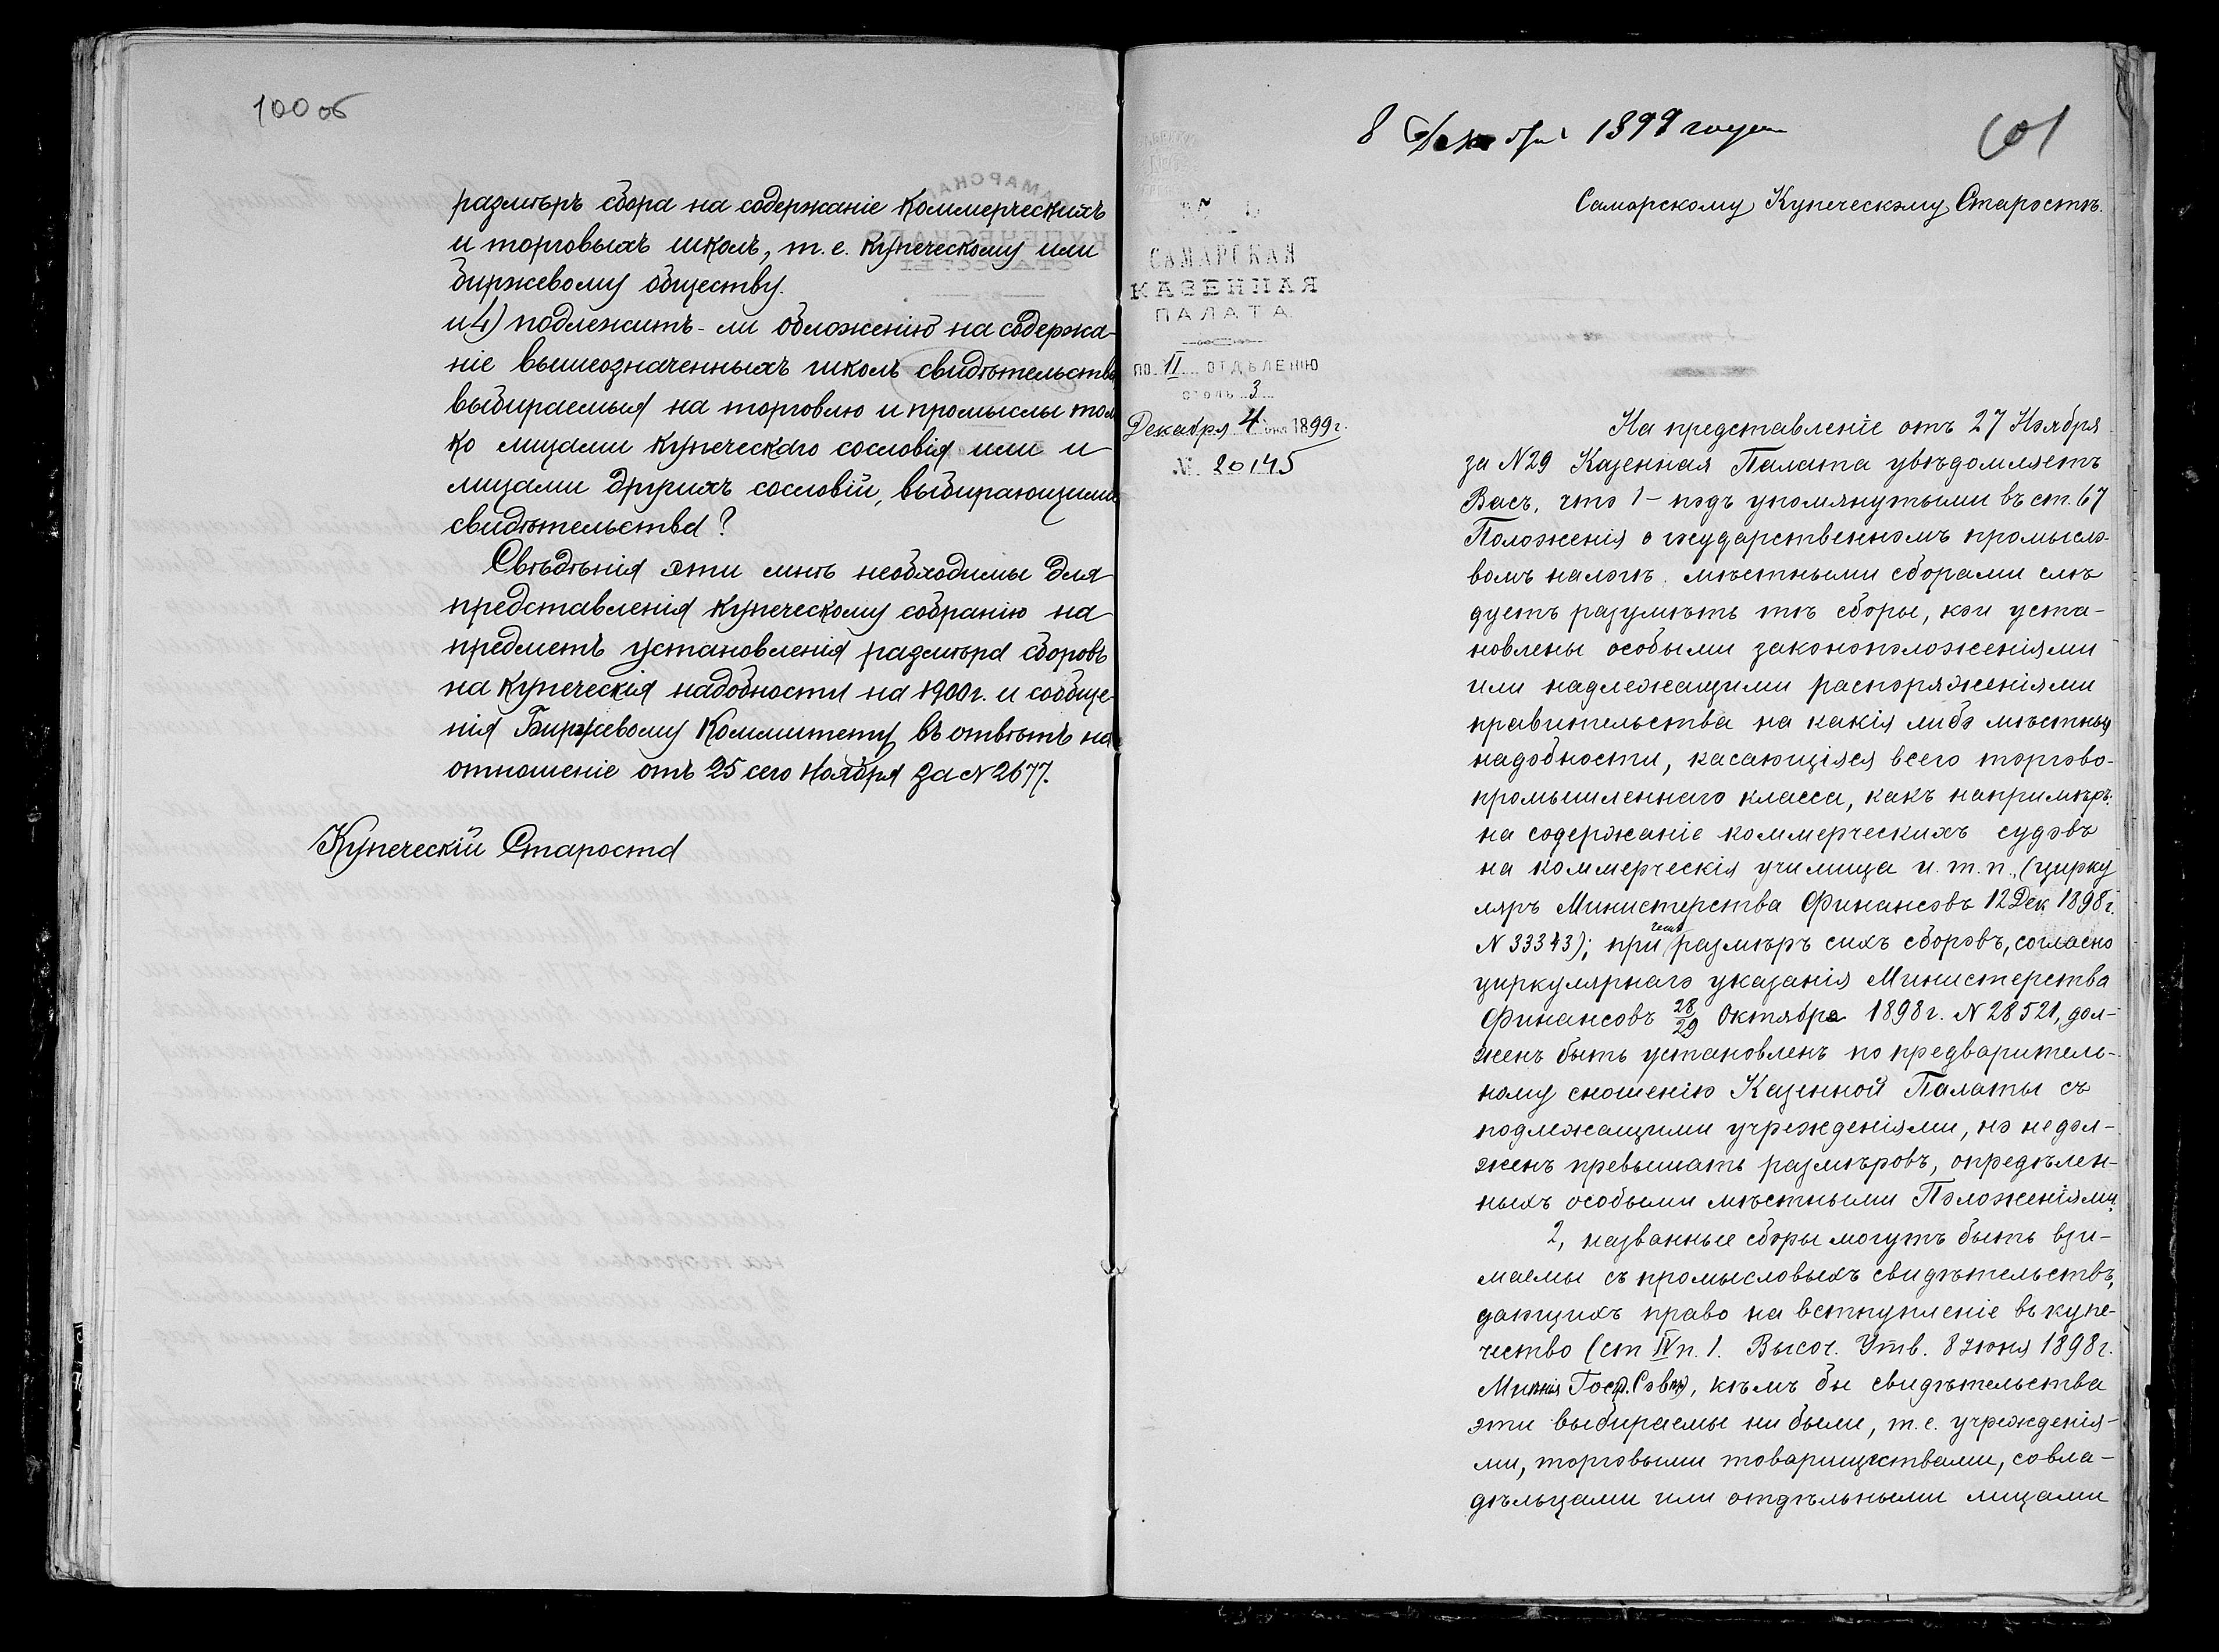 100 об
размѣръ сбора на содержаніе Коммерческихъ
и торговыхъ школъ, т. е. купеческому или
биржевому обществу.
и 4) подлежитъ-ли обложенію на содержа-
ніе вышеозначенныхъ школъ свидѣтельства
выбираемыя на торговлю и промыслы толь
ко лицами купеческаго сословія или и
лицами другихъ сословій, выбирающими
свидѣтельства?
Свѣдѣнія эти мнѣ необходимы для
представленія купеческому собранію на
предметъ установленія размѣра сборовъ
на купеческія надобности на 1900 г. и сообще-
нія Биржевому Коммитету въ отвѣтъ на
отношеніе отъ 25 сего Ноября за № 2677.
Купеческій Староста
8 Декабря 1899 года
101
Самарскому Купеческому Старостѣ.
САМАРСКАЯ
КАЗЕННАЯ
ПАЛАТА
ПО II ОТДѢЛЕНІЮ
СТОЛЪ 3
Декабря 4 дня 1899 г.
№ 20145
На представленіе отъ 27 Ноября
за № 29 Казенная Палата увѣдомляетъ
Васъ, что 1 – подъ упомянутыми въ ст. 67
Положенія о государственномъ промысло-
вомъ налогѣ мѣстными сборами слѣ
дуетъ разумѣть тѣ сборы, кои уста-
новлены особыми законоположеніями
или надлежащими распоряженіями
правительства на какія либо мѣстныя
надобности, касающіяся всего торгово-
промышленнаго класса, какъ напримѣръ:
на содержаніе коммерческихъ судовъ
на коммерческія училища и. т. п., (цирку
ляръ Министерства Финансовъ 12 Дек 1898 г.
№ 33343); при чемъ размѣръ сихъ сборовъ, согласно
циркулярнаго указанія Министерства
Финансовъ 28/29 Октября 1898 г. № 28521, дол-
женъ быть установленъ по предваритель-
ному сношенію Казенной Палаты съ
подлежащими учрежденіями, но не дол-
женъ превышать размѣровъ, опредѣлен-
ныхъ особыми мѣстными Положеніями.
2, названные сборы могутъ быть взи-
маемы съ промысловыхъ свидѣтельствъ,
дающихъ право на вступленіе въ купе-
чество (ст IV п. 1. Высоч. Утв. 8 Іюня 1898 г.
Мнѣнія Госуд. Совѣта), кѣмъ бы свидѣтельства
эти выбираемы ни были, т. е. учрежденія-
ми, торговыми товариществами, совла-
дѣльцами или отдѣльными лицами